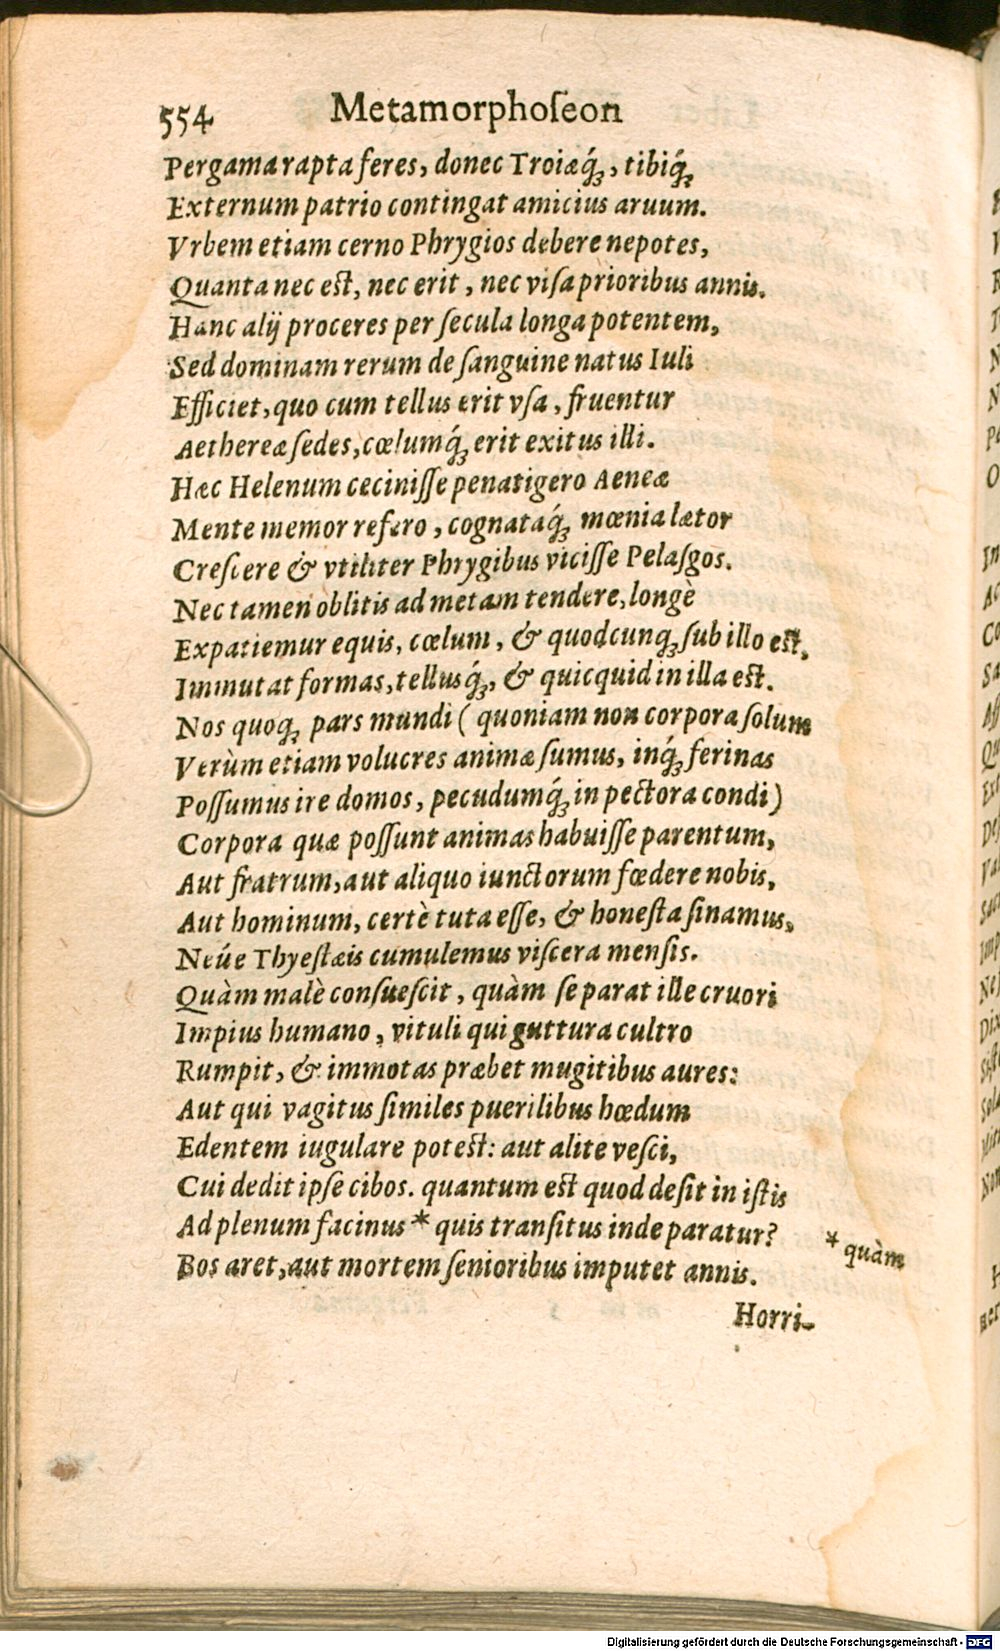 554 Metamorphoſeon
Pergama rapta feres, donec Troiæq́ꝫ, tibiq́ꝫ
Externum patrio contingat amicius aruum.
Vrbem etiam cerno Phrygios debere nepotes,
Quanta nec eſt, nec erit, nec viſa prioribus annis.
Hanc alij proceres per ſecula longa potentem,
Sed dominam rerum de ſanguine natus Iuli
Efficiet, quo cum tellus erit vſa, fruentur
Aethereæ ſedes, cœlumq́ꝫ erit exitus illi.
Hæc Helenum ceciniſſe penatigero Aeneæ
Mente memor refero, cognataq́ꝫ mœnia lætor
Creſcere & vtiliter Phrygibus viciſſe Pelaſgos.
Nec tamen oblitis ad metam tendere, longè
Expatiemur equis, cœlum, & quodcunqꝫ ſub illo eſt,
Immutat formas, tellusq́ꝫ, & quicquid in illa eſt.
Nos quoqꝫ pars mundi (quoniam non corpora ſolum
Verùm etiam volucres animæ ſumus, inq́ꝫ ferinas
Poſſumus ire domos, pecudumq́ꝫ in pectora condi)
Corpora quæ poſſunt animas habuiſſe parentum,
Aut fratrum, aut aliquo iunctorum fœdere nobis,
Aut hominum, certè tuta eſſe, & honeſta ſinamus,
Neúe Thyeſtæis cumulemus viſcera menſis.
Quàm malè conſueſcit, quàm ſe parat ille cruori
Impius humano, vituli qui guttura cultro
Rumpit, & immotas præbet mugitibus aures:
Aut qui vagitus ſimiles puerilibus hœdum
Edentem iugulare poteſt: aut alite veſci,
Cui dedit ipſe cibos. quantum eſt quod deſit in iſtis
Ad plenum facinus * quis tranſitus inde paratur?
* quàm
Bos aret, aut mortem ſenioribus imputet annis.
Horri-
Digitalisierung gefördert durch die Deutsche Forschungsgemeinschaft - DFG